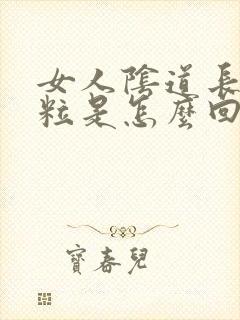 女人陰道長
粒是怎麼回
寶春兒